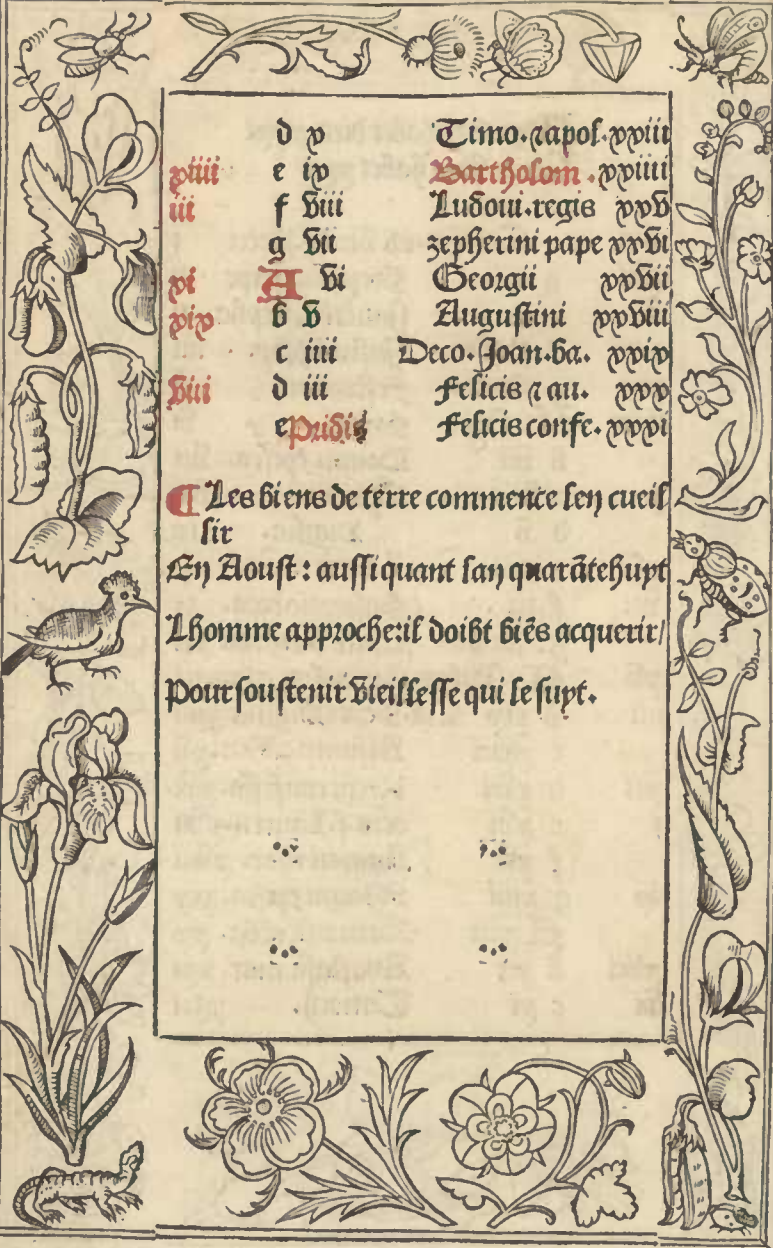 d x Timo. ⁊ apos. xxiii
xiiii e ix Bartholom. xxiiii
iii f viii Ludoui. regis xxv
g vii zepherini pape xxvi
xi A vi Georgii xxvii
xix b v Augustini xxviii
c iiii Deco. Joan. ba. xxix
viii d iii Felicis ⁊ au. xxx
e Pridie Felicis confe. xxxi
¶ Les biens de terre commence len cueil
lir
En Aoust: aussi quant lan quarãtehuyt
Lhomme approche: il doibt biẽs acquerir/
Pour soustenir vieillesse qui le suyt.